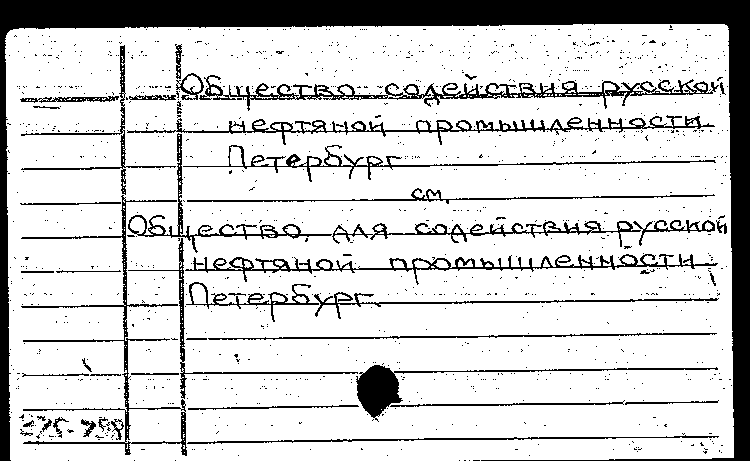 Общество содействия русской
нефтяной промышленности
Петербург
см.
Общество для содействия русской
нефтяной промышленности
Петербург.
275-758